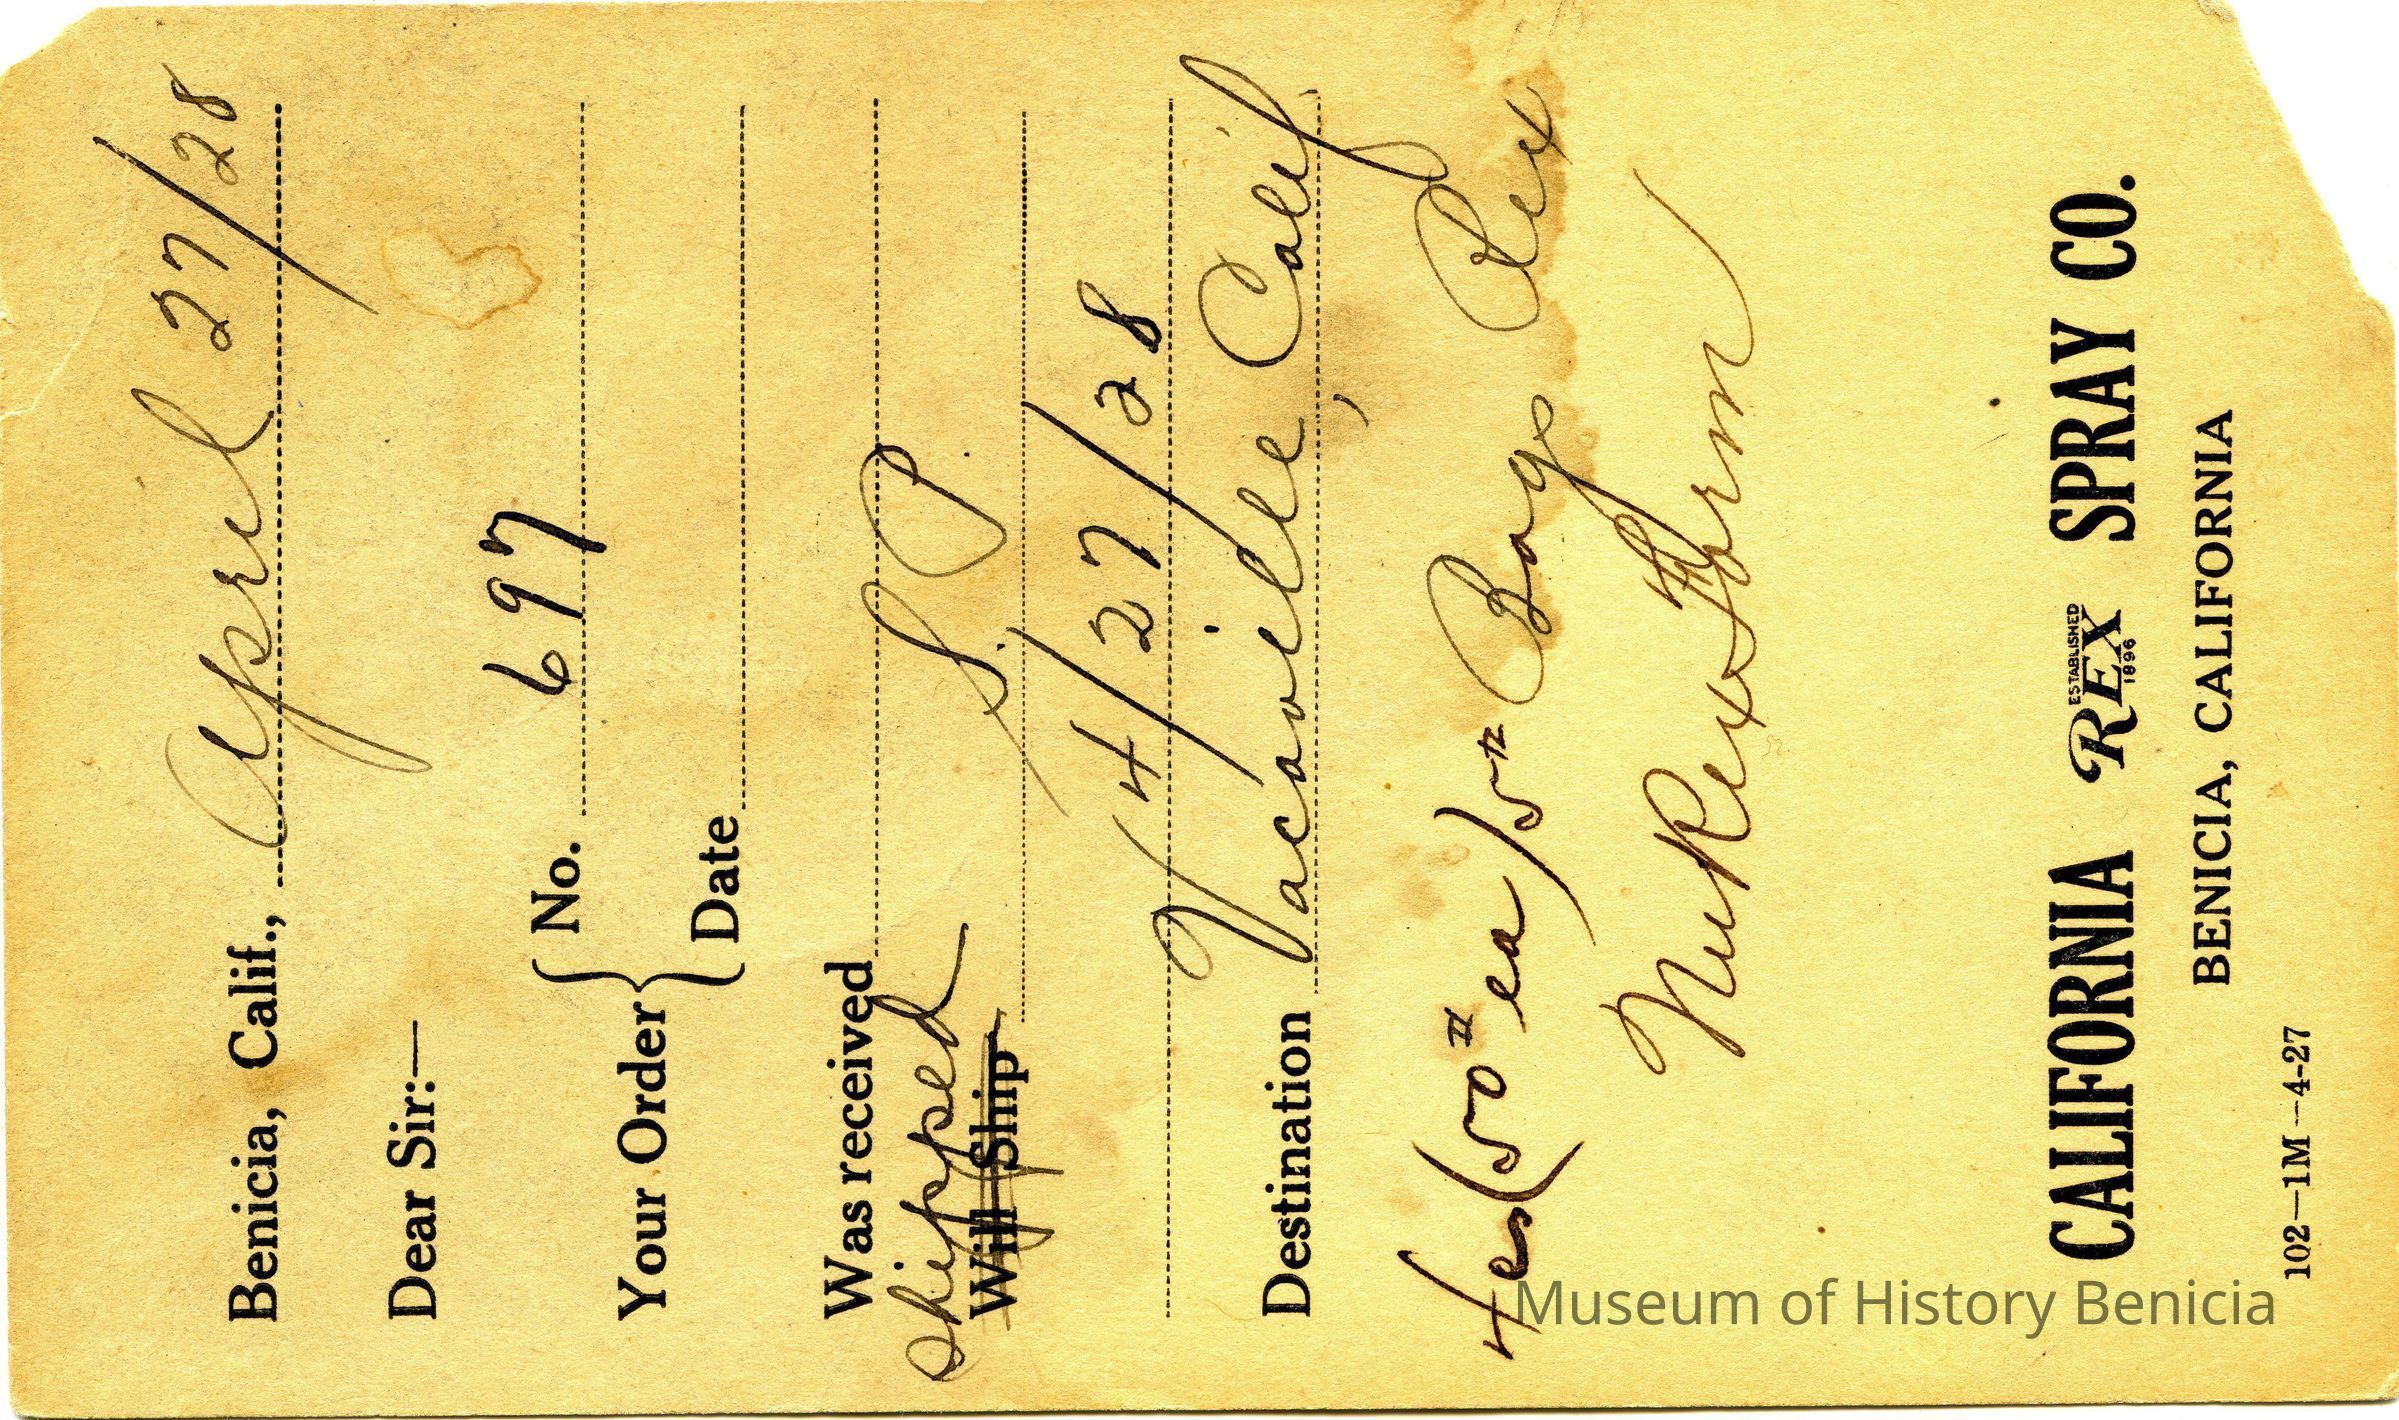 Benicia, Calif., April 27/28
Dear Sir:—
Your Order { No. 697
Date
Was received
shipped S.P.
Will Ship
4/27/28
Destination Vacaville, Calif
4es (50# ea) 5# Bags Rex
NuRexForm
CALIFORNIA REX SPRAY CO.
ESTABLISHED
1896
BENICIA, CALIFORNIA
102—1M—4-27
Museum of History Benicia